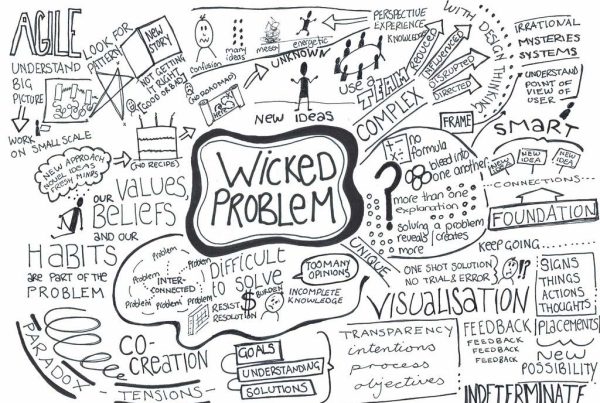 AGILE
UNDERSTAND
BIG
PICTURE
WORK
ON SMALL SCALE
LOOK FOR
PATTERN
NEW
STORY
NOT GETTING
IT RIGHT
(GOOD OR BAD)
confusion
many
ideas
messy
energetic
UNKNOWN
(NO ROADMAP)
NEW IDEAS
PERSPECTIVE
EXPERIENCE
KNOWLEDGE
use a
TEAM
COMPLEX
REDUCED
INFLUENCED
DISRUPTED
DIRECTED
WITH DESIGN
THINKING
IRRATIONAL
MYSTERIES
SYSTEMS
UNDERSTAND
POINT OF
VIEW OF
USER
FRAME
SMART
NEW APPROACH
NOVEL IDEAS
FRESH MINDS
(NO RECIPE)
OUR VALUES,
BELIEFS
AND OUR
HABITS
are PART OF THE
PROBLEM
WICKED
PROBLEM
no
formula
bleed into
one another
more than one
explanation
solving a problem
reveals/creates
more
UNIQUE
NEW
IDEA
NEW
IDEA
NEW
IDEA
CONNECTIONS
FOUNDATION
KEEP GOING....
Problem
Problem
Problem
INTER-
CONNECTED
Problem
Problem
Problem
Problem
DIFFICULT
TO SOLVE
RESIST
RESOLUTION
$
BURDEN
TOO MANY
OPINIONS
INCOMPLETE
KNOWLEDGE
ONE SHOT SOLUTION
NO TRIAL & ERROR
!?
SIGNS
THINGS
ACTIONS
THOUGHTS
(PLACEMENTS)
VISUALISATION
FEEDBACK
FEEDBACK
FEEDBACK
FEEDBACK
NEW
POSSIBILITY
PARADOX
CO-
CREATION
TENSIONS
GOALS
UNDERSTANDING
SOLUTIONS
TRANSPARENCY
intentions
process
objectives
INDETERMINATE